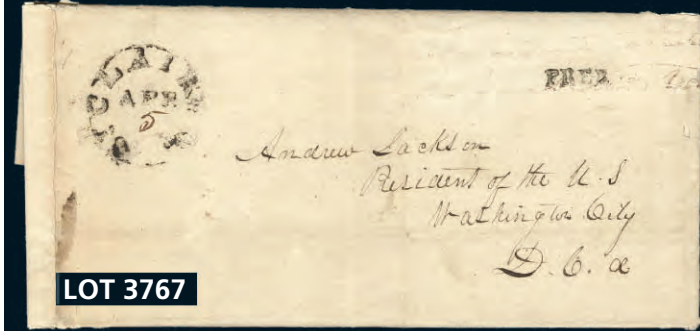 ST CLAIR
APR
5
FREE
Andrew Jackson
President of the U. S
Washington City
D. C. a
LOT 3767